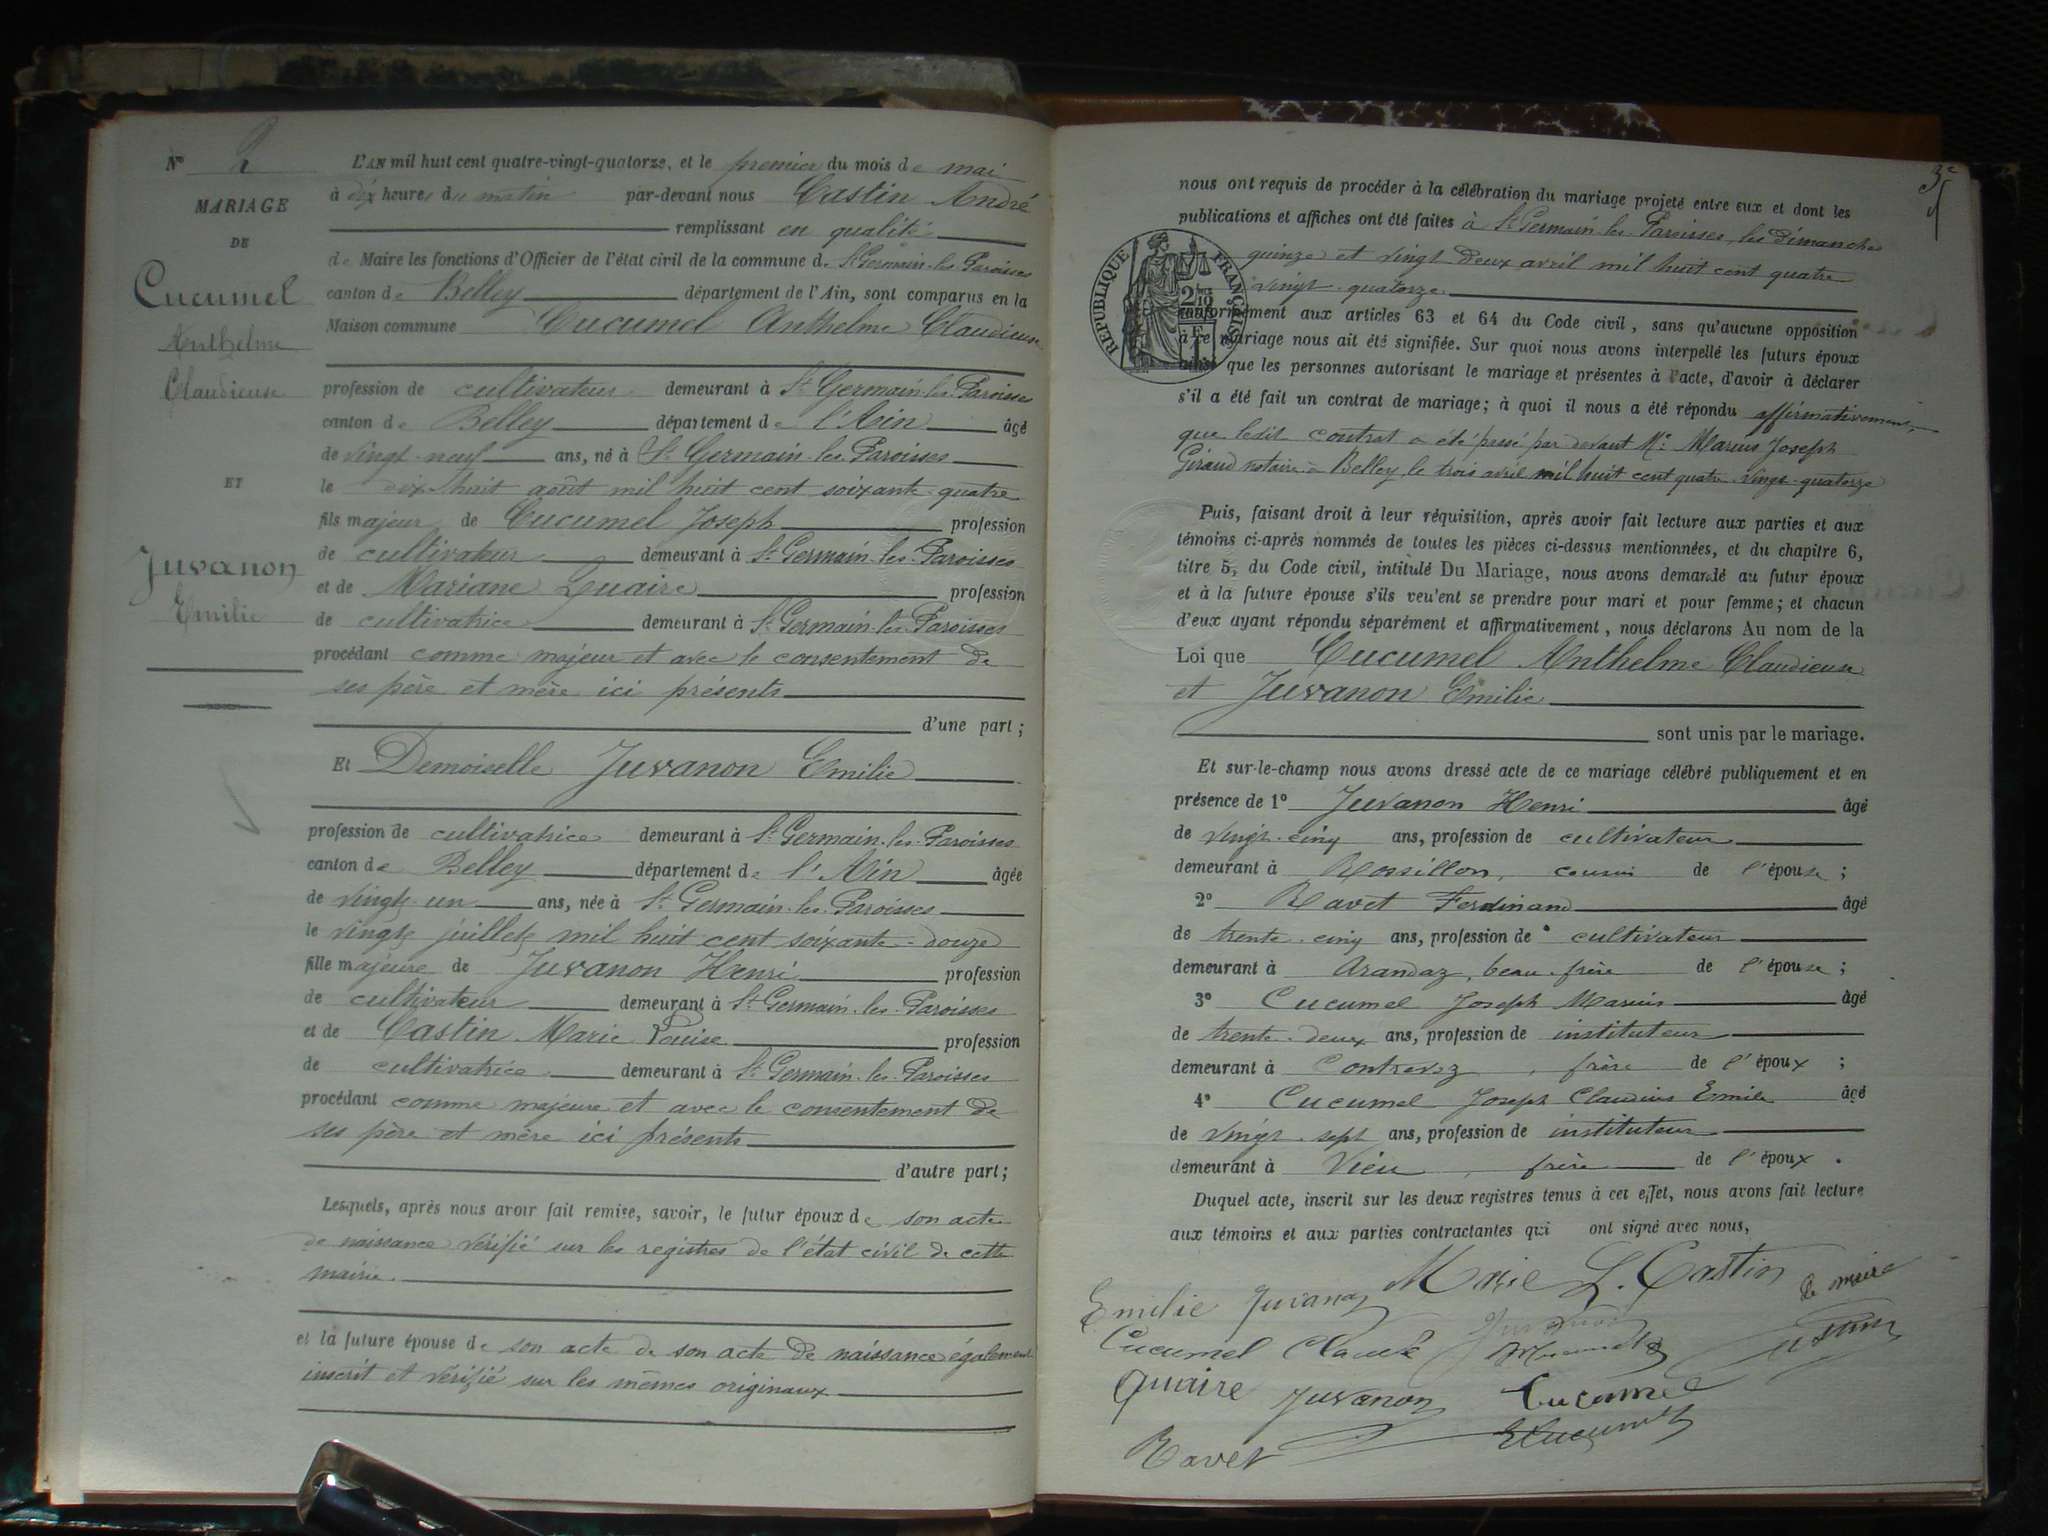 N° 2
MARIAGE
DE
Cucumel
Anthelme
Claudieuse
ET
Juvanon
Emilie
L'AN mil huit cent quatre-vingt-quatorze, et le premier du mois de mai
à dix heures du matin par-devant nous Castin André
remplissant en qualité
de Maire les fonctions d'Officier de l'état civil de la commune de St Germain-les-Paroisses
canton de Belley département de l'Ain, sont comparus en la
Maison commune Cucumel Anthelme Claudieuse
profession de cultivateur demeurant à St Germain-les-Paroisses
canton de Belley département de l'Ain âgé
de vingt-neuf ans, né à St Germain-les-Paroisses
le dix-huit août mil huit cent soixante-quatre
fils majeur de Cucumel Joseph profession
de cultivateur demeurant à St Germain-les-Paroisses
et de Mariane Quaire profession
de cultivatrice demeurant à St Germain-les-Paroisses
procédant comme majeur et avec le consentement de
ses père et mère ici présents
d'une part;
Et Demoiselle Juvanon Emilie
profession de cultivatrice demeurant à St Germain-les-Paroisses
canton de Belley département de l'Ain âgée
de vingt-un ans, née à St Germain-les-Paroisses
le vingt juillet mil huit cent soixante-douze
fille majeure de Juvanon Henri profession
de cultivateur demeurant à St Germain-les-Paroisses
et de Castin Marie Louise profession
de cultivatrice demeurant à St Germain-les-Paroisses
procédant comme majeure et avec le consentement de
ses père et mère ici présents
d'autre part;
Lesquels, après nous avoir fait remise, savoir, le futur époux de son acte
de naissance vérifié sur les registres de l'état civil de cette
mairie
et la future épouse de son acte de son acte de naissance également
inscrit et vérifié sur les mêmes originaux
nous ont requis de procéder à la célébration du mariage projeté entre eux et dont les
publications et affiches ont été faites à St Germain-les-Paroisses, les dimanches
quinze et vingt deux avril mil huit cent quatre
vingt-quatorze
RÉPUBLIQUE FRANÇAISE
conformément aux articles 63 et 64 du Code civil, sans qu'aucune opposition
à ce mariage nous ait été signifiée. Sur quoi nous avons interpellé les futurs époux
ainsi que les personnes autorisant le mariage et présentes à l'acte, d'avoir à déclarer
s'il a été fait un contrat de mariage; à quoi il nous a été répondu affirmativement
que ledit contrat a été passé par devant Me Marius Joseph
Giraud notaire à Belley, le trois avril mil huit cent quatre-vingt-quatorze
Puis, faisant droit à leur réquisition, après avoir fait lecture aux parties et aux
témoins ci-après nommés de toutes les pièces ci-dessus mentionnées, et du chapitre 6,
titre 5, du Code civil, intitulé Du Mariage, nous avons demandé au futur époux
et à la future épouse s'ils veulent se prendre pour mari et pour femme; et chacun
d'eux ayant répondu séparément et affirmativement, nous déclarons Au nom de la
Loi que Cucumel Anthelme Claudieuse
et Juvanon Emilie
sont unis par le mariage.
Et sur-le-champ nous avons dressé acte de ce mariage célébré publiquement et en
présence de 1° Juvanon Henri âgé
de vingt-cinq ans, profession de cultivateur
demeurant à Rossillon, cousin de l'épouse;
2° Ravet Ferdinand âgé
de trente-cinq ans, profession de cultivateur
demeurant à Arandaz, beau-frère de l'épouse;
3° Cucumel Joseph Marius âgé
de trente-deux ans, profession de instituteur
demeurant à Contrevoz, frère de l'époux;
4° Cucumel Joseph Claudius Emile âgé
de vingt-sept ans, profession de instituteur
demeurant à Vieu, frère de l'époux.
Duquel acte, inscrit sur les deux registres tenus à cet effet, nous avons fait lecture
aux témoins et aux parties contractantes qui ont signé avec nous,
Marie L. Castin
Emilie Juvanon
le maire
Cucumel Claude Juvanon
Castin
Quaire Juvanon Cucumel
Ravet Cucumel